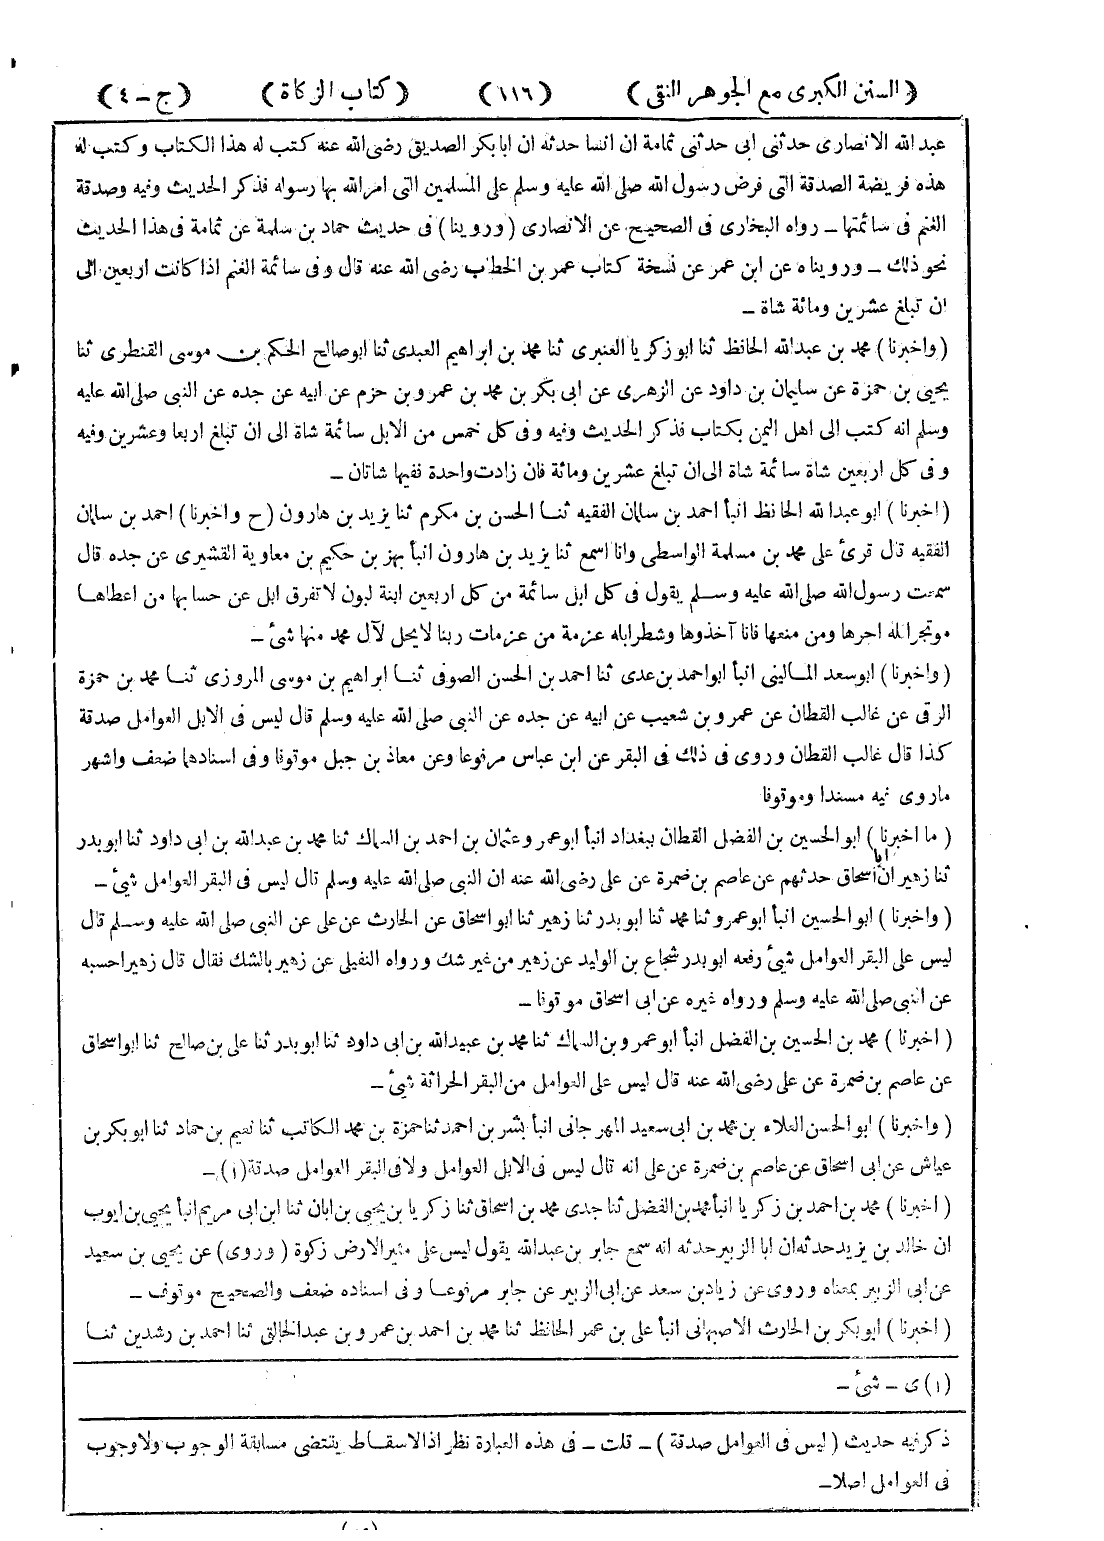 ( السنن الكبرى مع الجوهر النقى ) ( ١١٦ ) ( كتاب الزكاة ) ( ج ـ ٤ )
عبد الله الانصارى حدثنى ابى حدثنى ثمامة ان انسا حدثه ان ابا بكر الصديق رضى الله عنه كتب له هذا الكتاب وكتب له
هذه فريضة الصدقة التى فرض رسول الله صلى الله عليه وسلم على المسلمين التى امر الله بها رسوله فذكر الحديث وفيه وصدقة
الغنم فى سائمتها ـ رواه البخارى فى الصحيح عن الانصارى ( وروينا ) فى حديث حماد بن سلمة عن ثمامة فى هذا الحديث
نحو ذلك ـ ورويناه عن ابن عمر عن نسخة كتاب عمر بن الخطاب رضى الله عنه قال وفى سائمة الغنم اذا كانت اربعين الى
ان تبلغ عشرين ومائة شاة ـ
( واخبرنا ) محمد بن عبد الله الحافظ ثنا ابو زكريا العنبرى ثنا محمد بن ابراهيم العبدى ثنا ابو صالح الحكم بن موسى القنطرى ثنا
يحيى بن حمزة عن سليمان بن داود عن الزهرى عن ابى بكر بن محمد بن عمرو بن حزم عن ابيه عن جده عن النبى صلى الله عليه
وسلم انه كتب الى اهل اليمن بكتاب فذكر الحديث وفيه وفى كل خمس من الابل سائمة شاة الى ان تبلغ اربعا وعشرين وفيه
وفى كل اربعين شاة سائمة شاة الى ان تبلغ عشرين ومائة فان زادت واحدة ففيها شاتان ـ
( اخبرنا ) ابو عبد الله الحافظ انبأ احمد بن سلمان الفقيه ثنا الحسن بن مكرم ثنا يزيد بن هارون ( ح واخبرنا ) احمد بن سلمان
الفقيه قال قرئ على محمد بن مسلمة الواسطى وانا اسمع ثنا يزيد بن هارون انبأ بهز بن حكيم بن معاوية القشيرى عن جده قال
سمعت رسول الله صلى الله عليه وسلم يقول فى كل ابل سائمة من كل اربعين ابنة لبون لا تفرق ابل عن حسابها من اعطاها
موتجرا له اجرها ومن منعها فانا آخذوها وشطر ابله عزمة من عزمات ربنا لا يحل لآل محمد منها شئ ـ
( واخبرنا ) ابو سعد المالينى انبأ ابو احمد بن عدى ثنا احمد بن الحسن الصوفى ثنا ابراهيم بن موسى المروزى ثنا محمد بن حمزة
الرقى عن غالب القطان عن عمرو بن شعيب عن ابيه عن جده عن النبى صلى الله عليه وسلم قال ليس فى الابل العوامل صدقة
كذا قال غالب القطان وروى فى ذلك فى البقر عن ابن عباس مرفوعا وعن معاذ بن جبل موقوفا وفى اسنادهما ضعف واشهر
ما روى فيه مسندا وموقوفا
( ما اخبرنا ) ابو الحسين بن الفضل القطان ببغداد انبأ ابو عمرو عثمان بن احمد بن السماك ثنا محمد بن عبد الله بن ابى داود ثنا ابو بدر
ثنا زهير ان ابا اسحاق حدثهم عن عاصم بن ضمرة عن على رضى الله عنه ان النبى صلى الله عليه وسلم قال ليس فى البقر العوامل شئ ـ
( واخبرنا ) ابو الحسين انبأ ابو عمرو ثنا محمد ثنا ابو بدر ثنا زهير ثنا ابو اسحاق عن الحارث عن على عن النبى صلى الله عليه وسلم قال
ليس على البقر العوامل شئ رفعه ابو بدر شجاع بن الوليد عن زهير من غير شك ورواه النفيلى عن زهير بالشك فقال قال زهير احسبه
عن النبى صلى الله عليه وسلم ورواه غيره عن ابى اسحاق موقوفا ـ
( اخبرنا ) محمد بن الحسين بن الفضل انبأ ابو عمرو بن السماك ثنا محمد بن عبيد الله بن ابى داود ثنا ابو بدر ثنا على بن صالح ثنا ابو اسحاق
عن عاصم بن ضمرة عن على رضى الله عنه قال ليس على العوامل من البقر الحراثة شئ ـ
( واخبرنا ) ابو الحسن العلاء بن محمد بن ابى سعيد المهرجانى انبأ بشر بن احمد ثنا حمزة بن محمد الكاتب ثنا نعيم بن حماد ثنا ابو بكر بن
عياش عن ابى اسحاق عن عاصم بن ضمرة عن على انه قال ليس فى الابل العوامل ولا فى البقر العوامل صدقة (١) ـ
( اخبرنا ) محمد بن احمد بن زكريا انبأ محمد بن الفضل ثنا جدى محمد بن اسحاق ثنا زكريا بن يحيى بن ابان ثنا ابن ابى مريم انبأ يحيى بن ايوب
ان خالد بن يزيد حدثه ان ابا الزبير حدثه انه سمع جابر بن عبد الله يقول ليس على مثير الارض زكوة ( وروى ) عن يحيى بن سعيد
عن ابى الزبير بمعناه وروى عن زياد بن سعد عن ابى الزبير عن جابر مرفوعا وفى اسناده ضعف والصحيح موقوف ـ
( اخبرنا ) ابو بكر بن الحارث الاصبهانى انبأ على بن عمر الحافظ ثنا محمد بن احمد بن عمرو بن عبد الخالق ثنا احمد بن رشدين ثنا
(١) ى ـ شئ ـ
ذكر فيه حديث ( ليس فى العوامل صدقة ) ـ قلت ـ فى هذه العبارة نظر اذ الاسقاط يقتضى مسابقة الوجوب ولا وجوب
فى العوامل اصلا ـ